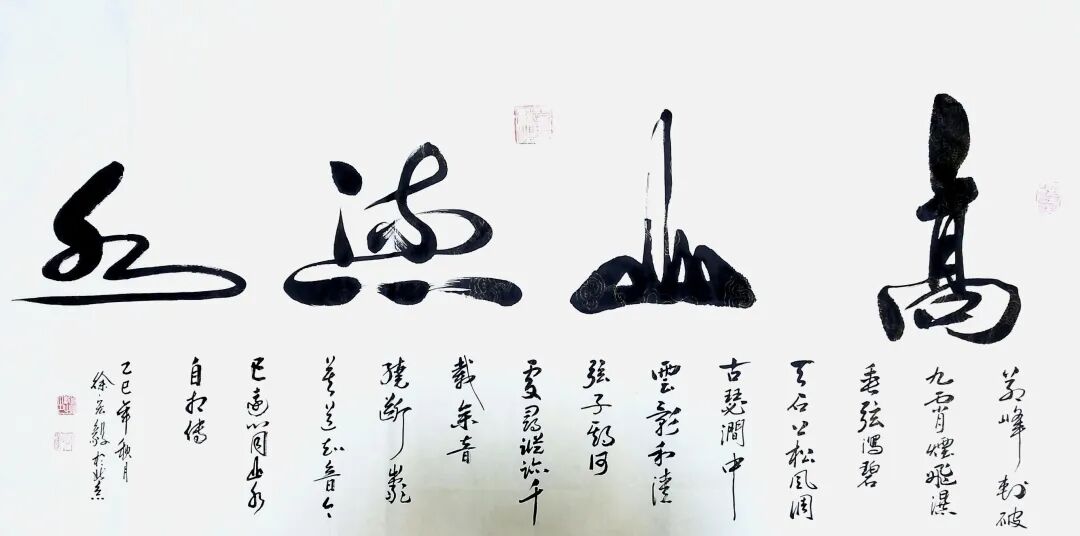 高山流水
萬峰刺破
九霄煙飛瀑
垂弦瀉碧
天石上松風調
古瑟澗中
雲影和清
弦子期何
處尋蹤跡千
載余音
繞斷
莫道知音今
已遠心同山水
自相傳
乙巳年秋月
徐毅於北京